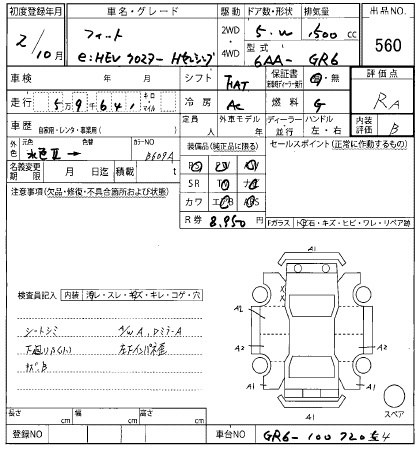 初度登録年月 車名・グレード 駆動 ドア数・形状 排気量 出品NO.
2/10月 フィット 2WD・4WD 5・W 1,500 cc 560
e:HEV クロスター Hセンシング 型式 6AA- GR6
車検 年 月 シフト 保証書 有・無 評価点
走行 5万9千641 キロ・マイル 冷房 AC 燃料 G RA
車歴 自家用・レンタ・事業用( ) 定員 人 外車モデル 年 ディーラー・並行 ハンドル 左・右 内装評価 B
外色 元色 色替 カラーNO 装備品(純正品に限る) セールスポイント(正常に作動するもの)
B609M
名義変更期限 月 日迄 積載 t SR
注意事項(欠品・修復・不具合箇所および状態) カワ エアB
R券 8,950円
Fガラス 飛石・キズ・ヒビ・ワレ・リペア跡
検査員記入 内装 汚レ・スレ・キズ・キレ・コゲ・穴
シートシミ A/W A, DミラーA
下廻りサビ(小)
A1
A1
A2 A2
A1 A1
A1
スペア
長さ cm 幅 cm 高さ cm
登録NO 車台NO GR6-100